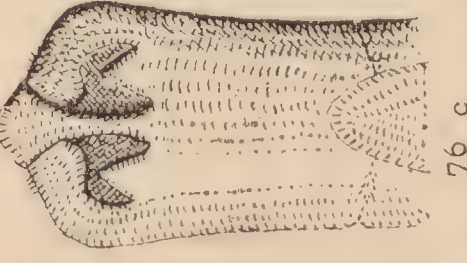 76 c